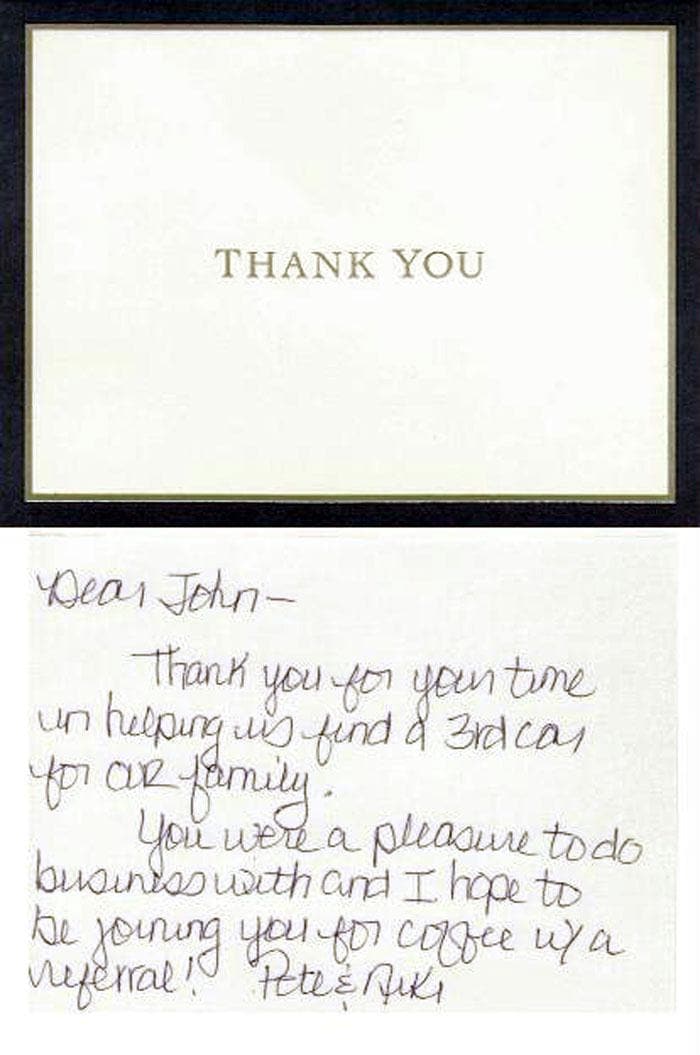 THANK YOU
Dear John-
Thank you for your time
in helping us find a 3rd car
for our family.
You were a pleasure to do
business with and I hope to
be joining you for coffee w/ a
referral! Pete &